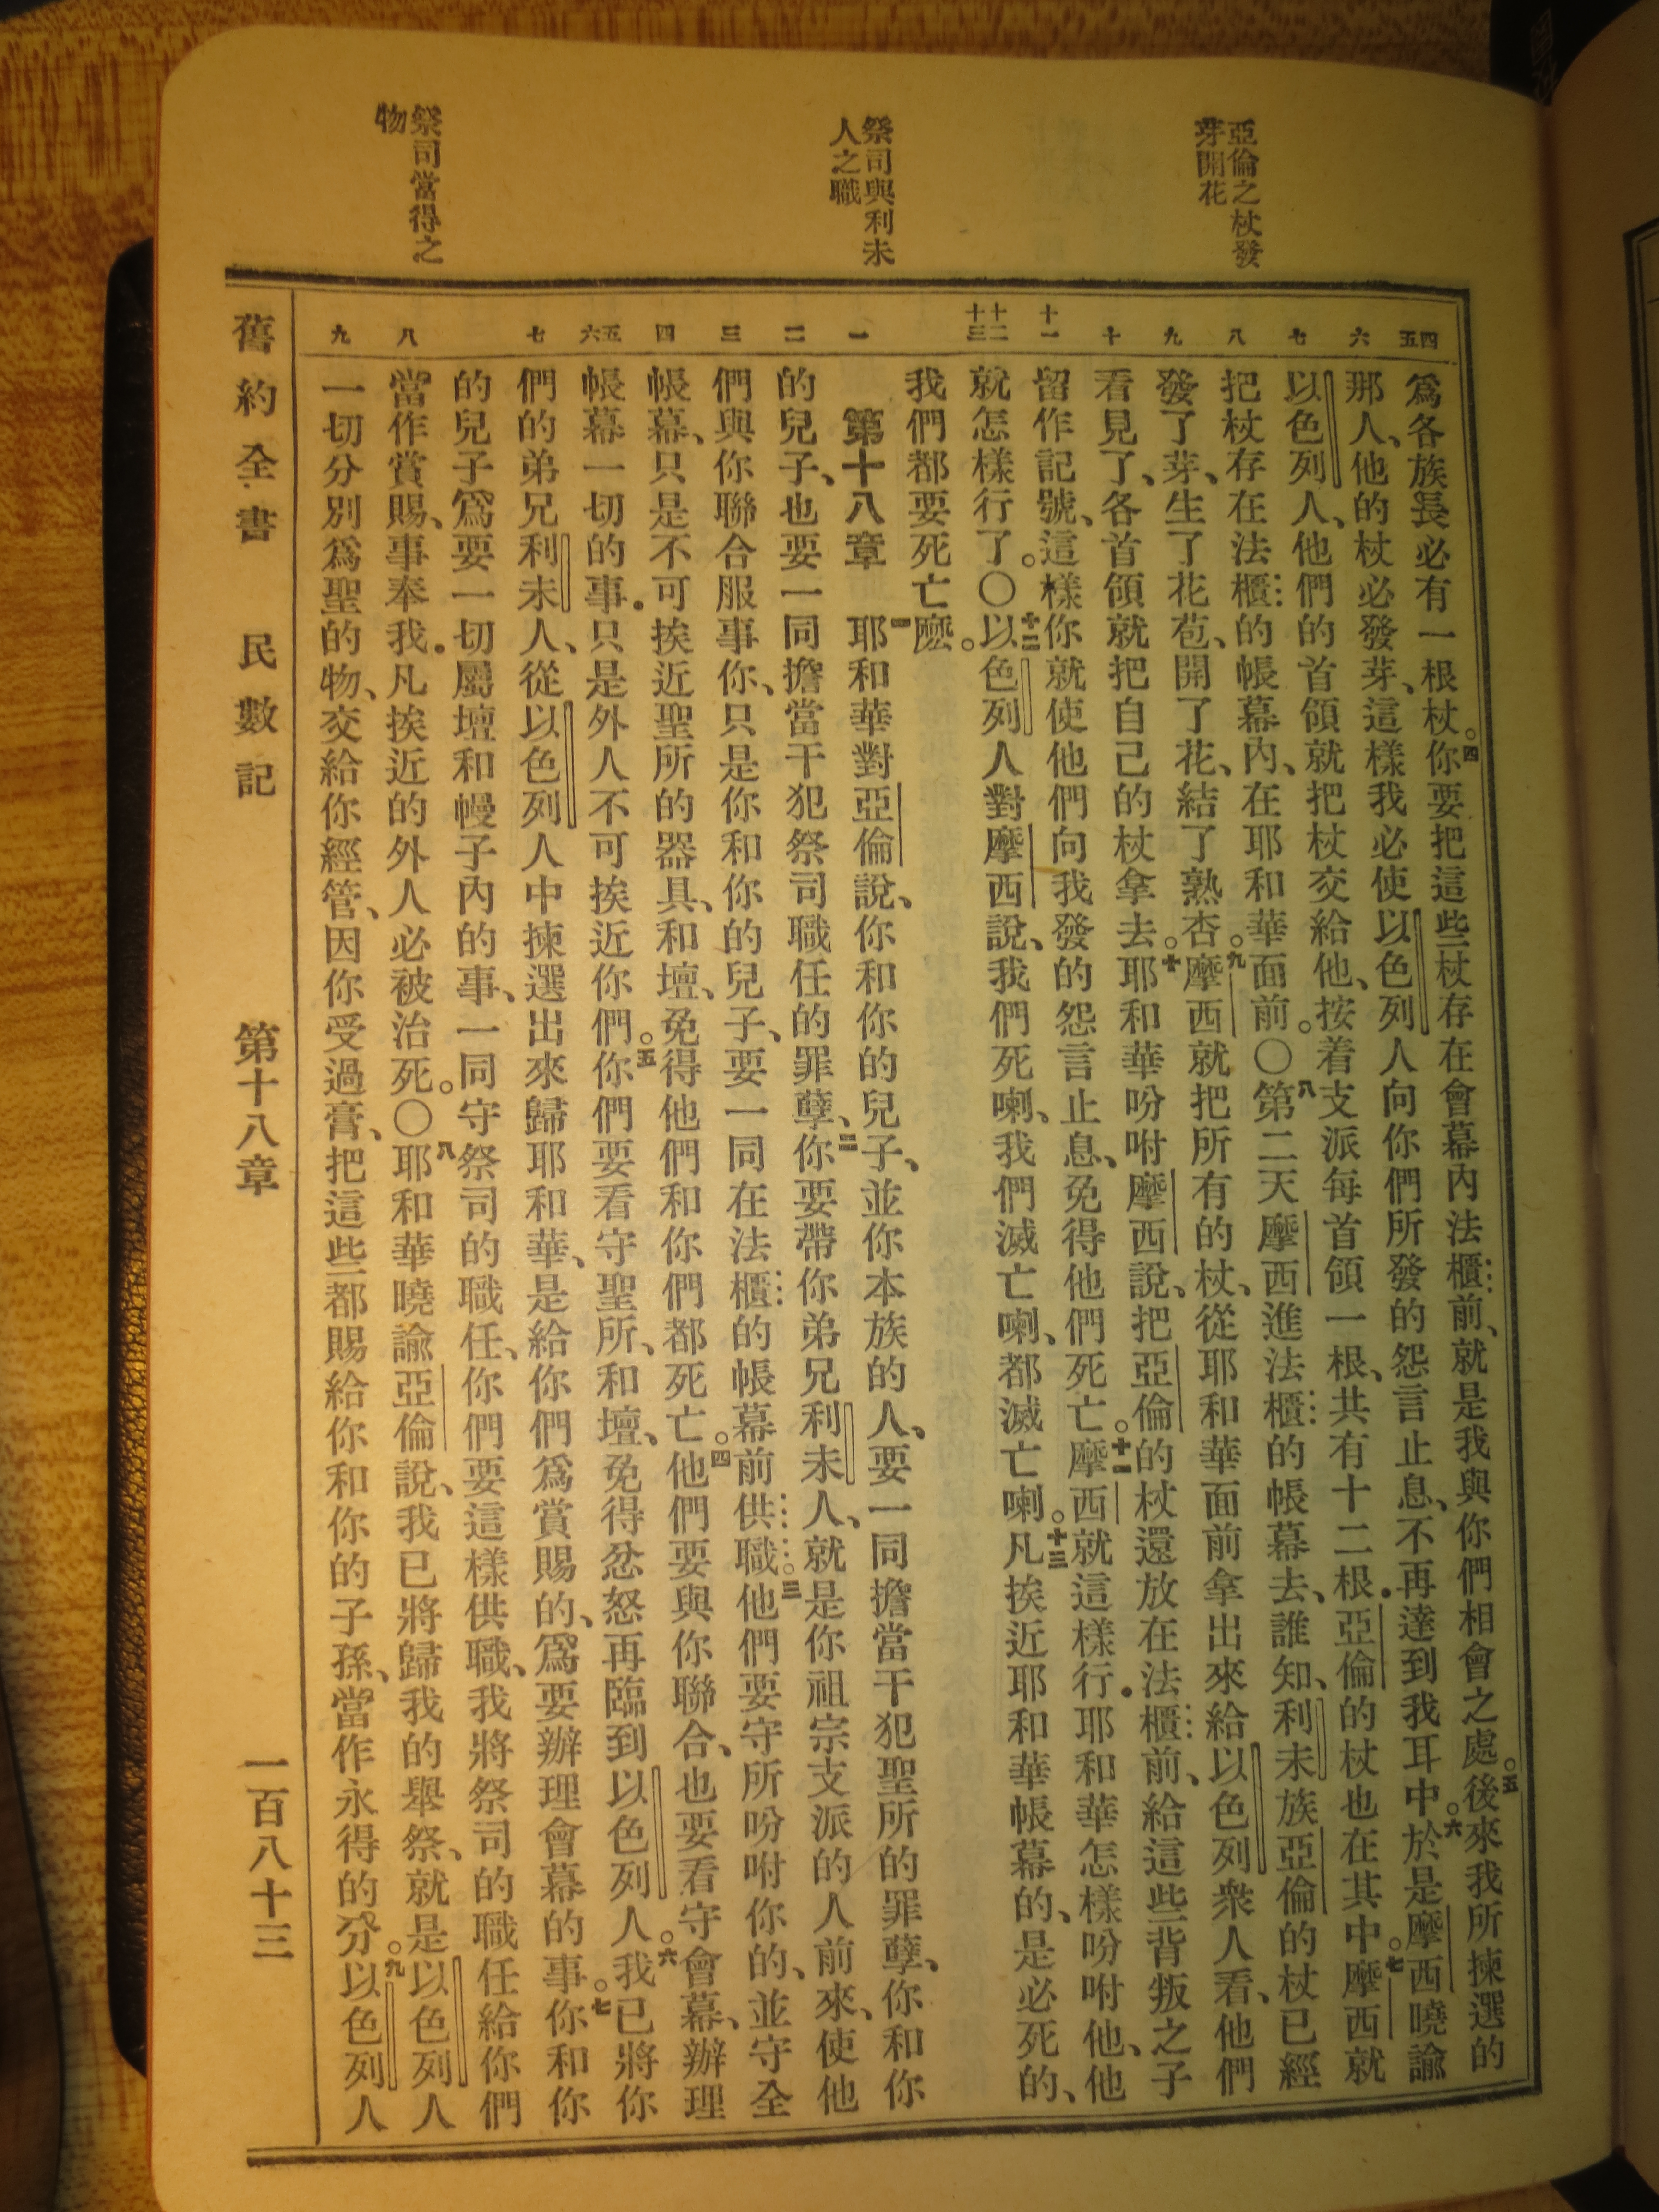 亞倫之杖發
芽開花
祭司與利未
人之職
祭司當得之
物
四
五
六
七
八
九
十
十一
十二
十三
一
二
三
四
五
六
七
八
九
爲各族長必有一根杖。四你要把這些杖存在會幕內法櫃前、就是我與你們相會之處。五後來我所揀選的
那人、他的杖必發芽、這樣我必使以色列人向你們所發的怨言止息、不再達到我耳中。六於是摩西曉諭
以色列人、他們的首領就把杖交給他、按着支派每首領一根、共有十二根．亞倫的杖也在其中。七摩西就
把杖存在法櫃的帳幕內、在耶和華面前。〇八第二天摩西進法櫃的帳幕去、誰知、利未族亞倫的杖已經
發了芽、生了花苞、開了花、結了熟杏。九摩西就把所有的杖、從耶和華面前拿出來給以色列衆人看、他們
看見了、各首領就把自己的杖拿去。十耶和華吩咐摩西說、把亞倫的杖還放在法櫃前、給這些背叛之子
留作記號、這樣你就使他們向我發的怨言止息、免得他們死亡。十一摩西就這樣行．耶和華怎樣吩咐他、他
就怎樣行了。〇十二以色列人對摩西說、我們死喇、我們滅亡喇、都滅亡喇。十三凡挨近耶和華帳幕的、是必死的、
我們都要死亡麼。
第十八章　一耶和華對亞倫說、你和你的兒子、並你本族的人、要一同擔當干犯聖所的罪孽、你和你
的兒子、也要一同擔當干犯祭司職任的罪孽、二你要帶你弟兄利未人、就是你祖宗支派的人前來、使他
們與你聯合服事你、只是你和你的兒子、要一同在法櫃的帳幕前供職。三他們要守所吩咐你的、並守全
帳幕、只是不可挨近聖所的器具、和壇、免得他們和你們都死亡。四他們要與你聯合、也要看守會幕、辦理
帳幕一切的事．只是外人不可挨近你們。五你們要看守聖所、和壇、免得忿怒再臨到以色列人。六我已將你
們的弟兄利未人、從以色列人中揀選出來歸耶和華、是給你們爲賞賜的、爲要辦理會幕的事。七你和你
的兒子爲要一切屬壇和幔子內的事、一同守祭司的職任、你們要這樣供職、我將祭司的職任給你們
當作賞賜、事奉我．凡挨近的外人必被治死。〇八耶和華曉諭亞倫說、我已將歸我的舉祭、就是以色列人
一切分別爲聖的物、交給你經管、因你受過膏、把這些都賜給你和你的子孫、當作永得的分。九以色列人
舊約全書　民數記　第十八章　一百八十三